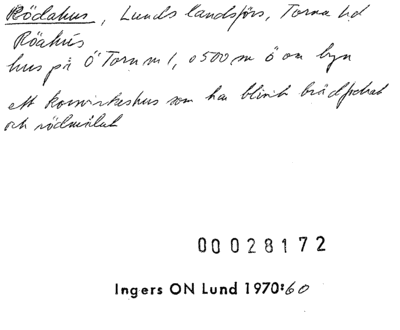 Rödahus, Lunds landsförs, Torna hd
Röahús
hus på Ö Torn nr 1, o 500 m ö om byn
ett korsvirkeshus som har blivit brädfodrat
och rödmålat
00028172
Ingers ON Lund 1970:60